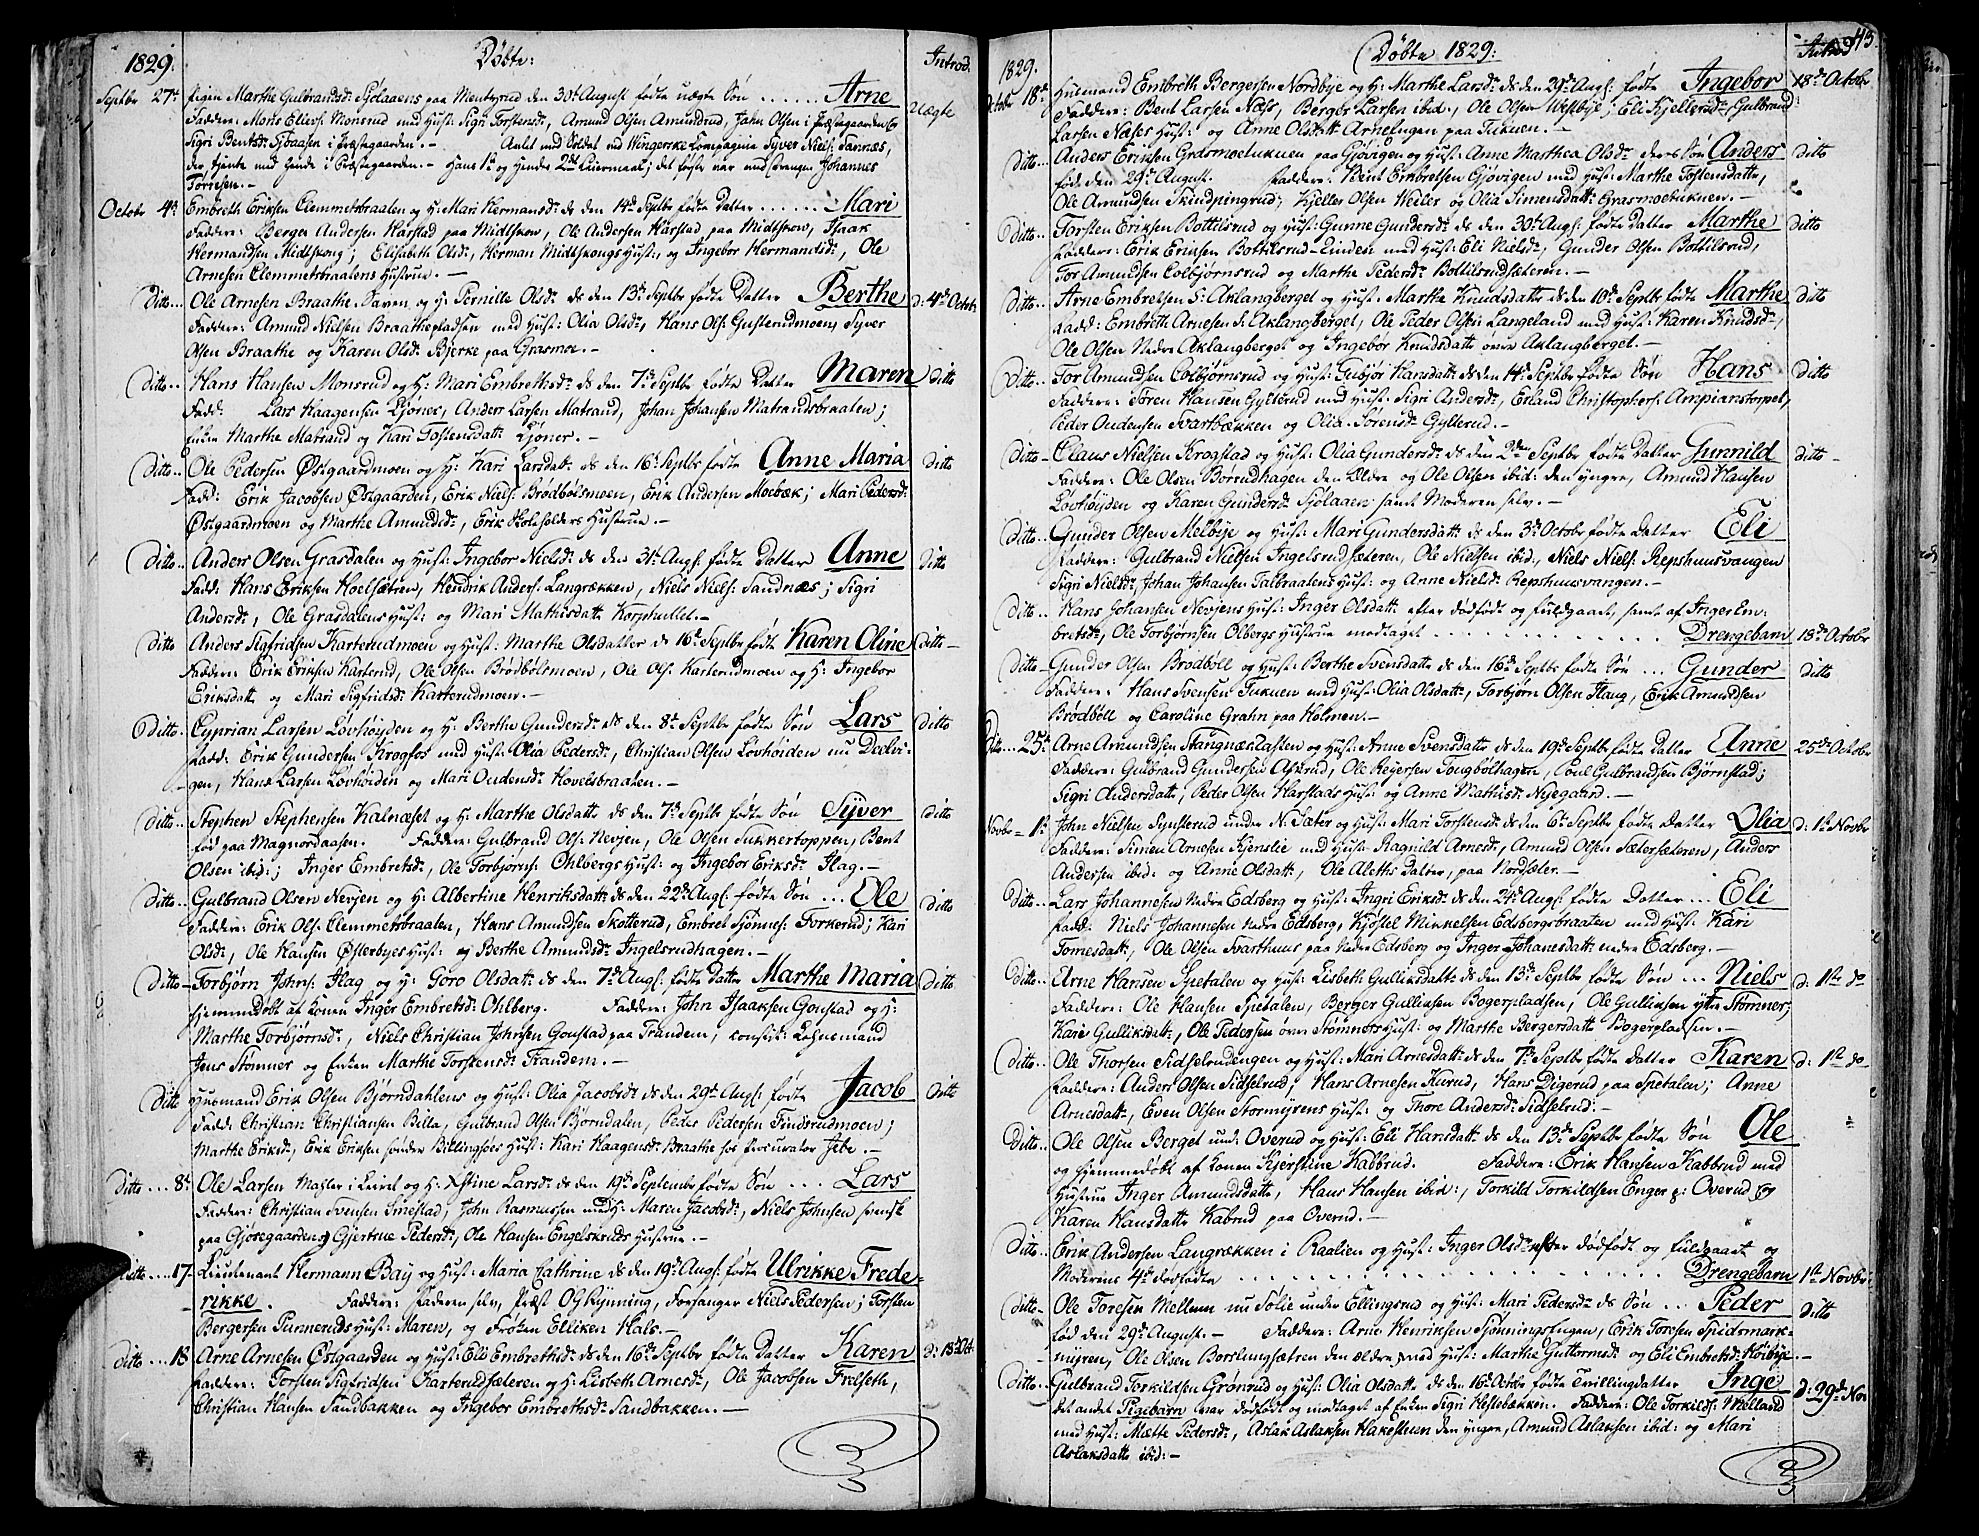 1829. Døbte: Introd.
Septbr 27de Pigen Marthe Gulbrandsdr Sjølaaens paa Mentzrud den 30te August fødte uægte Søn ...... Arne Uægte
Faddere: Mons Ellevs. Monsrud med Hust: Sigri Torstensdr, Amund Olsen Amundrud, John Olsen i Præstegaarden og
Sigri Bentsdr Sjøaasen i Præstegaarden. - Avlet med Soldat ved Wingerske Compagnie Syver Niels: Sannæs,
der tjente med hende i Præstegaarden. - Hans 1te og hendes 2det Leiermaal; det første var med Johannes
Tørresen. -
Octobr 4de Embreth Eriksen Clemmetsbraaten og H: Mari Hermansdr ds den 14de Septbr fødte Datter ...... Mari
Faddere: Berger Andersen Harstad paa Midtskou, Ole Andersen Harstad paa Midtskou, Isaak
Hermandsen Midtskoug; Elisabeth Olsdr, Herman Midtskougs Hust: og Ingebor Hermandsdr, Ole
Arnesen Clemmetsbraatens Hustrue. -
Ditto ... Ole Arnesen Braathe Haven og H: Pernille Olsdr ds den 13de Septbr fødte Datter Berthe d. 4de Octobr
Faddere: Amund Nielsen Braathepladsen med Hust: Olia Olsdr, Hans Ols: Gusterudmoen, Syver
Olsen Braathe og Karen Olsdr Bjerke paa Grasmoe. -
Ditto .. Hans Hansen Monsrud og H: Mari Embrethsdr ds den 7de Septbr fødte Datter Maren Ditto
Fadd: Lars Haagensen Tjøner, Anders Larsen Matrand, Johan Johansen Matrandsbraaten;
Enken Marthe Matrand og Kari Tostensdatr Tjøner. -
Ditto .. Ole Pedersen Østgaardmoen og H: Kari Larsdatr ds den 16de Septbr fødte Anne Maria Ditto
Fadd: Erik Jacobsen Østgaarden, Erik Niels: Brødbølsmoen, Erik Andersen Moebæk; Mari Pedersdr
Østgaardmoen og Marthe Amundsdr, Erik Skoleholders Hustrue. -
Ditto .. Anders Olsen Grasdalen og Hust: Ingebor Nielsdr ds den 31te Augs: fødte Datter Anne Ditto
Fadd: Hans Eriksen Hoelsætren, Hendrik Anders: Langrækken, Niels Niels: Sandnæs; Sigri
Andersdr, Ole Grasdalens Hust: og Mari Mathisdatr Korphullet. -
Ditto Anders Sigfridsen Karterudmoen og Hust: Marthe Olsdatter ds 16de Septbr fødte Karen Oline Ditto -
Faddere: Erik Eriksen Karterud, Ole Olsen Brødbølmoen, Ole Ols: Karterudmoen og H: Ingebor
Eriksdatr og Mari Sigfridsdr Karterudmoen. -
Ditto .. Cyprian Larsen Løvhøyden og H: Berthe Gundersdr ds den 8de Septbr fødte Søn Lars Ditto
Fadd: Erik Gundersen Krogfos med Hust: Olia Pedersdr, Christian Olsen Løvhøiden nu
gen, Hans Larsen Løvhøiden og Mari Oudensdr Hovelsbraaten. -
Ditto .. Stephen Stephensen Kalnæset og H: Marthe Olsdattr ds den 7de Septbr fødte Søn Syver Ditto
fød paa Magnordaasen. Faddere: Gulbrand Ols: Nevjen, Ole Olsen Sukkertoppen, Bent
Olsen ibid:; Inger Embretsdr, Ole Torbjørns: Ohlbergs Hust: og Ingebor Eriksdr Flag. -
Ditto .. Gulbrand Olsen Nevjen og H: Albertine Henriksdatr ds den 22de Augs: fødte Søn ... Ole Ditto
Faddere: Erik Ols: Clemmetsbraaten, Hans Amundsen Skotterud, Embret Torkerud; Kari
Olsdr, Ole Hansen Østerbyes Hust: og Berthe Amundsdr Ingelsrudhagen. -
Ditto - Torbjørn Johns: Flag og H: Goro Olsdatr ds den 7de Augs: fødte Datter Marthe Maria Ditto
hjemmedøbt af Konen Inger Embretsdr Ohlberg. Faddere: John Isaaksen Gonstad og H:
Marthe Torbjørnsdr, Niels Christian Johnsen Gonstad paa Trandem, Lehnsmand
Jens Stømner og Enken Marthe Torstensdr Trandem. -
Ditto Huusmand Erik Olsen Bjørndahlens og Hust: Olia Jacobsdr ds den 29de Augs: fødte Jacob Ditto
Fadd: Christian Christiansen Bila, Gulbrand Olsen Bjørndalen, Peder Pedersen Findsrudmoen;
Marthe Eriksdr, Erik Eriksen søndre Billingsøes Hust: Kari Haagensdr Braathe hos Procurator Jebe. -
Ditto ... 8de Ole Larsen Mahler i Leiret og H: Kjstine Larsdr ds den 19de September fødte Søn ... Lars
Faddere: Christian Svensen Smestad, John Rasmussen med H: Maren Jacobsdr, Niels Johnsen svensk
paa Gjøsegaarden; Gjertrue Pedersdr, Ole Hansen Engelskruds Hustrue. -
Ditto .... 17 - Lieutenant Hermann Bay og Hust: Maria Cathrine ds den 19de Augs: fødte Ulrikke Frede-
rikke. Faddere: Faderen selv, Præst Rynning, Forsanger Niels Pedersen; Torsten
Bergersen Hust: Maren, og Frøken Elliken Hals. -
Ditto .... 18 Arne Arnesen Østgaarden og Hust: Eli Embrethsdr ds den 16de Septbr fødte Datter Karen d: 18de Oct.
Faddere: Torsten Sigfridsen Karterudsæteren og H: Lisbeth Arnesdr, Ole Jacobsen Frelseth,
Christian Hansen Sandbakken og Ingebor Embrethsdr Sandbakken. -
1829. Døbte 1829: Introd 43.
Octobr 18de Huusmand Embreth Bergersen Nordbye og H: Marthe Larsdr ds den 29de Augs: fødte Ingebor 18de Octobr
Faddere: Bent Larsen Næss, Berger Larsen ibid:, Ole Olsen Westbye; Eli Kjellersdr, Gulbrand
Larsen Næses Hust: og Anne Olsdatr Arneengen paa Tuknen. -
Ditto ... Anders Eriksen Grasmoetuknen paa Gjøvigen og Hust: Anne Marthea Olsdr deres Søn Anders Ditto
fød den 29de August. Faddere: Bent Embretsen Gjøvigen med Hust: Marthe Tostensdatr,
Ole Amundsen Skindpingrud, Kjeller Olsen Weiler og Olia Simensdatr Grasmoetuknen. -
Ditto .. Torsten Eriksen Bottilsrud og Hust: Gunne Gundersdr ds den 30te Augs: fødte Datter Marthe Ditto
Faddere: Erik Eriksen Bottilsrud-Linden med Hust: Eli Nielsdr, Gunder Olsen Bottilsrud,
Tor Amundsen Colbjørnsrud og Marthe Pedersdr Bottilsrudsæteren. -
Ditto .. Arne Embretsen S: Aklangberget og Hust: Marthe Knudsdatr ds den 10de Septbr fødte Marthe Ditto
Fadd: Embreth Arnesen S: Aklangberget, Ole Peder Olsen Langeland med Hust: Karen Knudsdr,
Ole Olsen Nedre Aklangberget og Ingebor Knudsdatr øvre Aklangberget. -
Ditto .. Tor Amundsen Colbjørnsrud og Hust: Gubjør Hansdatr ds den 14de Septbr fødte Søn Hans Ditto
Faddere: Søren Hansen Gylterud med Hust: Sigri Andersdr, Erland Christophers: Ampianstorpet,
Peder Oudensen Svartbækken og Olia Sørensdr Gylterud. -
Ditto - Claus Nielsen Krogstad og Hust: Olia Gundersdr ds den 2den Septbr fødte Datter Gunnild Ditto -
Faddere: Ole Olsen Børrudhagen den Ældre og Ole Olsen ibid: den yngre, Amund Hansen
Løvhøyden og Karen Gundersdr Sjølaaen samt Moderen selv. -
Ditto .. Gunder Olsen Melbye og Hust: Mari Gundersdatr ds den 3de Octobr fødte Datter Eli
Faddere: Gulbrand Nielsen Ingelsrudsæteren, Ole Nielsen ibid:, Niels Niels: Repshuusvangen
Sigri Nielsdr, Johan Johansen Talbraatens Hust: og Anne Nielsdr Repshuusvangen. -
Ditto .. Hans Johansen Nevjens Hust: Inger Olsdatr efter dødfødt og fuldgaaet, samt af Inger Em-
bretsdr, Ole Torbjørnsen Olbergs Hustrue modtaget ........ Drengebarn 18de Octobr
Ditto - Gunder Olsen Brødbøll og Hust: Berthe Svensdatr ds den 16de Septbr fødte Søn ... Gunder Ditto
Faddere: Hans Svensen Tuknen med Hust: Olia Olsdatr, Torbjørn Olsen Flaug, Erik Amundsen
Brødbøll og Caroline Grahn paa Holmen. -
Ditto ... 25de Arne Amundsen Stangnæstasten og Hust: Anne Svensdatr ds den 19de Septbr fødte Datter Anne 25de Octobr
Faddere: Gulbrand Gundersen Aserud, Ole Reyersen Tongbølhagen, Poul Gulbrandsen Bjørnstad;
Sigri Andersdatr, Peder Olsen Harstads Hust: og Anne Mathisdr Nyegaard. -
Novbr - 1te John Nielsen Synsterud under N: Sæter og Hust: Mari Torstensdr ds den 6te Septbr fødte Datter Olia d: 1te Novbr
Faddere: Simen Arnesen Kjenslie med Hust: Ragnild Arnesdr, Amund Olsen Sætersæteren, Anders
Andersen ibid: og Anne Olsdatr, Ole Aleths Datter, paa Nordsæter. -
Ditto .. Lars Johannesen Nedre Edsberg og Hust: Ingri Eriksdr ds den 24de Augs: fødte Datter ... Eli
Fadd: Niels Johannesen Nedre Edsberg, Kjøstel Mikkelsen Edsbergsbraaten med Hust: Kari
Tomesdatr, Ole Olsen Svarthuus paa Nedre Edsberg og Inger Johanesdatr nedre Edsberg. -
Ditto .. Arne Hansen Spetalen og Hust: Lisbeth Gulliksdatr ds den 13de Septbr fødte Søn ... Niels d: 1te do
Faddere: Ole Hansen Spetalen, Berger Gulliksen Bogerpladsen, Ole Gulliksen yttre Stømner;
Kari Gulliksdatr, Ole Pedersen øvre Stømners Hust: og Marthe Bergersdatr Bogerpladsen. -
Ditto .. Ole Thorsen Sidselrudengen og Hust: Mari Arnesdatr ds den 7de Septbr fødte Datter Karen d: 1te do
Faddere: Anders Olsen Sidselrud, Hans Arnesen Kurud, Hans Digerud paa Spetalen; Anne
Arnesdatr, Even Olsen Stormyrens Hust: og Thore Andersdr Sidselrud. -
Ditto .. Ole Olsen Berget und: Overud og Hust: Eli Hansdatr ds den 13de Septbr fødte Søn Ole
og hjemmedøbt af Konen Kjerstine Kabbrud. Faddere: Erik Hansen Kabbrud med
Hustrue Inger Amundsdatr, Hans Hansen ibid:, Torkild Torkildsen Enger p: Overud og
Karen Hansdatr Kabrud paa Overud. -
Ditto .. Erik Andersen Langrækken i Raalien og Hust: Inger Olsdr efter dødfødt og fuldgaaet og
Moderens 4de dødfødte ........ Drengebarn 1te Novbr
Ditto - Ole Toresen Mellem nu Solie under Ellingsrud og Hust: Mari Pedersdr ds Søn ... Peder Ditto
fød den 29de August. - Faddere: Arne Henriksen Sjønningsengen, Erik Toresen Spidsmark-
myren, Ole Olsen Borslungsætren den ældre, med Hust: Marthe Guttormsdr og Eli Embretsdr Høibye. -
Ditto .. Gulbrand Torkildsen Grønsrud og Hust: Olia Olsdatr ds den 16de Octbr fødte Tvillingdatter Inge d: 29de Nov
det andet Pigebarn var dødfødt og modtaget af Enken Sigri Hestebækken. Faddere: Ole Torkilds: Melland
med Hust: Mætte Pedersdr, Aslak Aslaksen Hakestuen den yngre, Amund Aslaksen ibid: og Mari
Aslaksdatr ibid: -